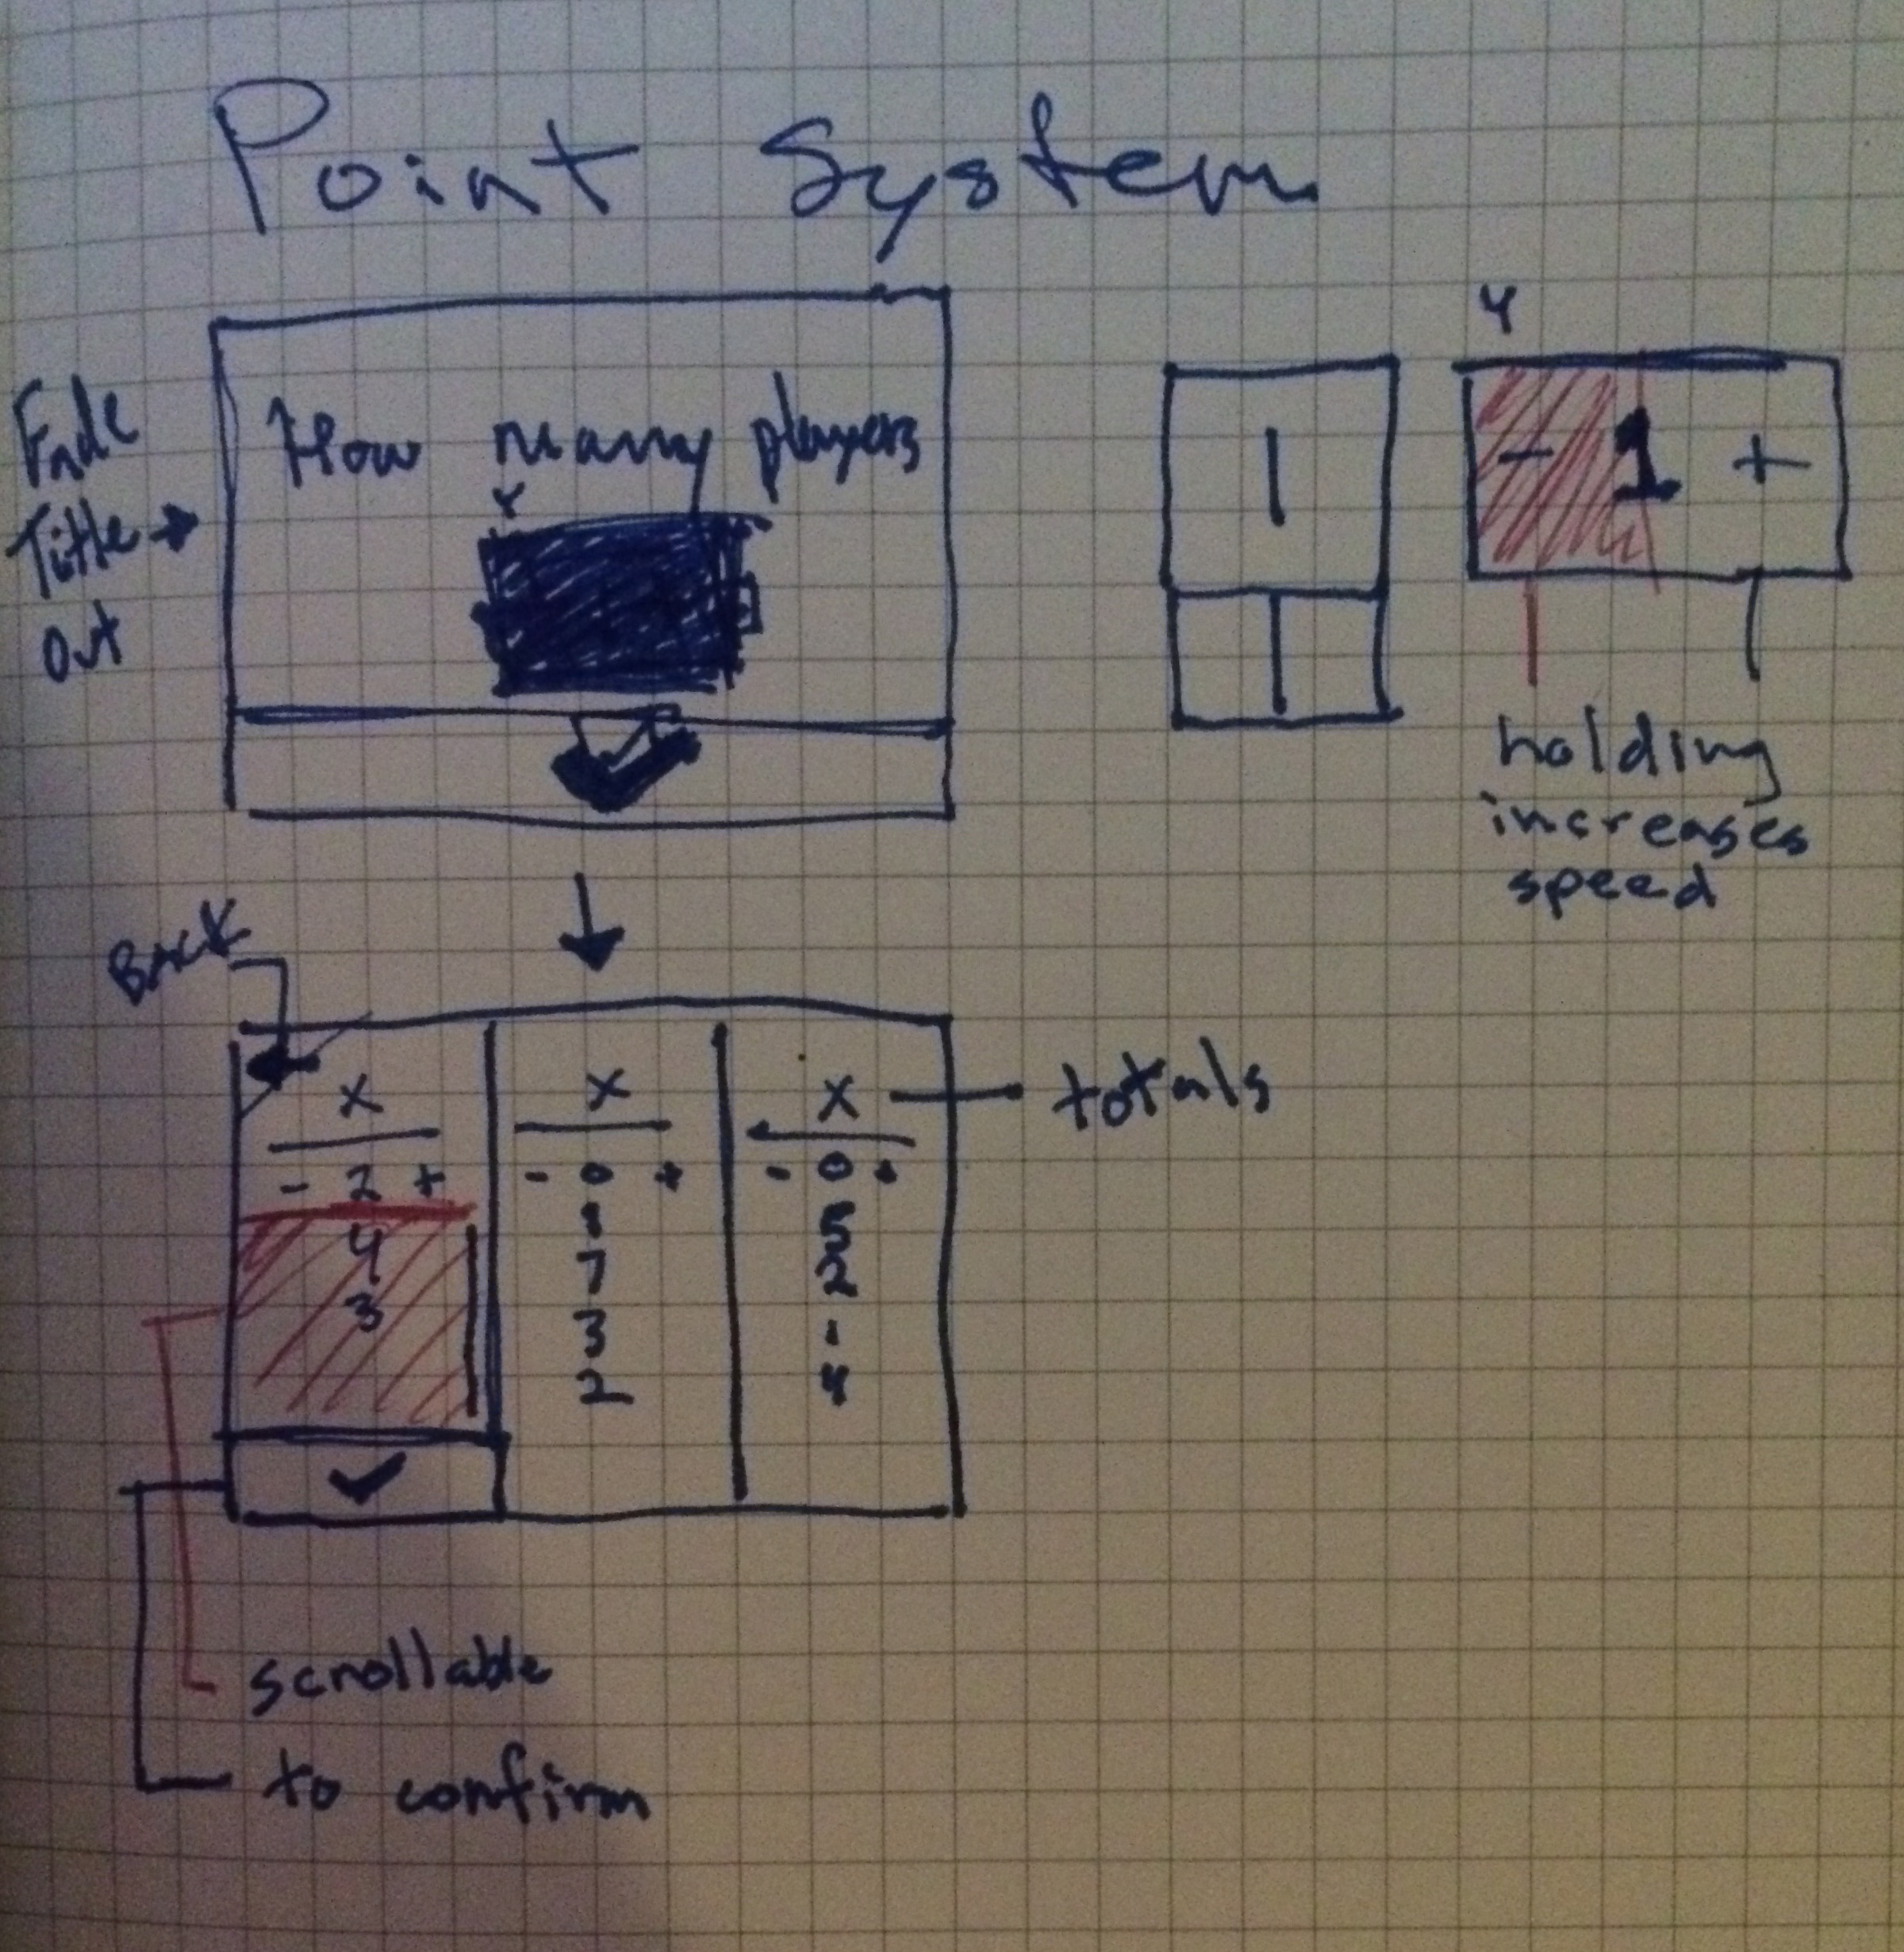 Point System
Fade
Title
Out
How many players
Y
1
Y
- 1 +
holding
increases
speed
BACK
X X X
totals
- 2 + - 0 + - 0 +
4 1 5
3 7 2
3 1
2 4
scrollable
to confirm